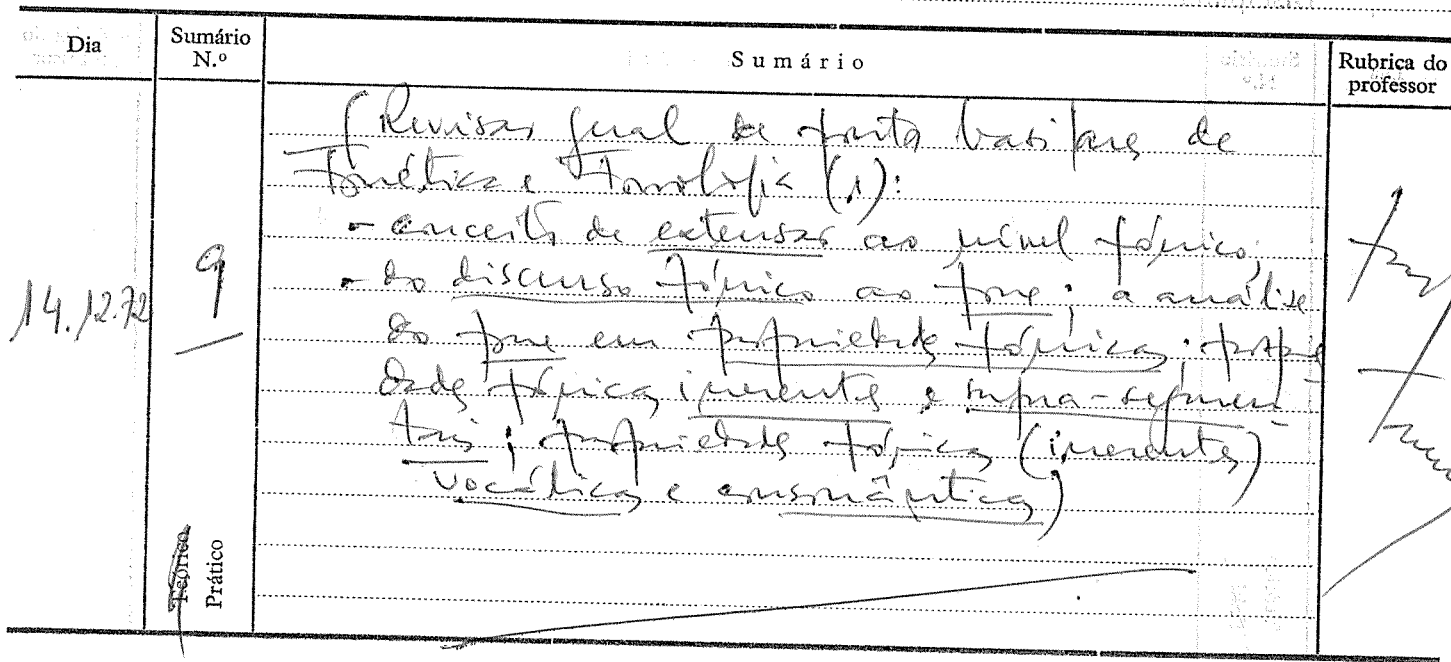 Dia
Sumário
N.º
Sumário
Rubrica do
professor
14.12.72
9
(Revisão geral de pontos basilares de
Fonética e Fonologia (1):
- conceito de extensão ao nível fónico;
- do discurso fónico ao fone; a análise
do fone em propriedades fónicas; proprie
dades fónicas inerentes e supra-segmen
tais; propriedades fónicas (inerentes)
vocálicas e consonânticas)
Teórico
Prático